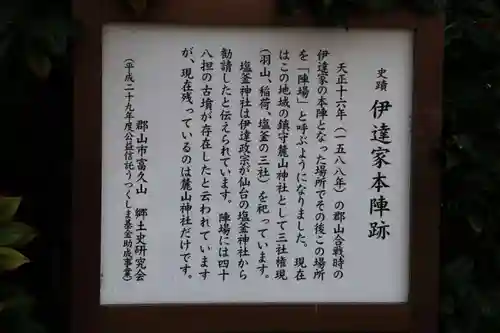 史蹟　伊達家本陣跡
天正十六年（一五八八年）の郡山合戦時の
伊達家の本陣となった場所でその後この場所
を「陣場」と呼ぶようになりました。現在
はこの地域の鎮守麓山神社として三社権現
（羽山、稲荷、塩釜の三社）を祀っています。
塩釜神社は伊達政宗が仙台の塩釜神社から
勧請したと伝えられています。陣場には四十
八担の古墳が存在したと云われています
が、現在残っているのは麓山神社だけです。
郡山市富久山　郷土史研究会
（平成二十九年度公益信託うつくしま基金助成事業）